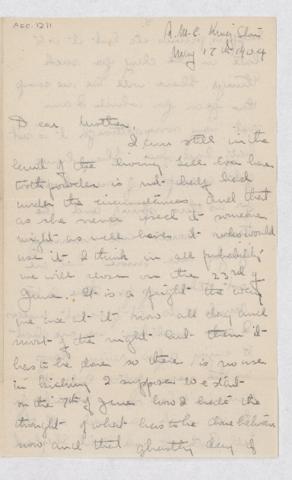 Acc. 1211
R.M.C. Kingston
May 17th 1904
Dear Mother,
I am still in the
land of the living. Tell
tooth powder is not half bad
under the circumstances and that
as she never used it someone
might as well have it who would
use it. I think in all probability
we will even on the 23rd of
June. It is a fright the way
we are at it now all day and
most of the night but then it
has to be done so there is no use
in kicking I suppose we start
on the 7th of June how I hate the
thought of what has to be done between
now and that ghastly day if